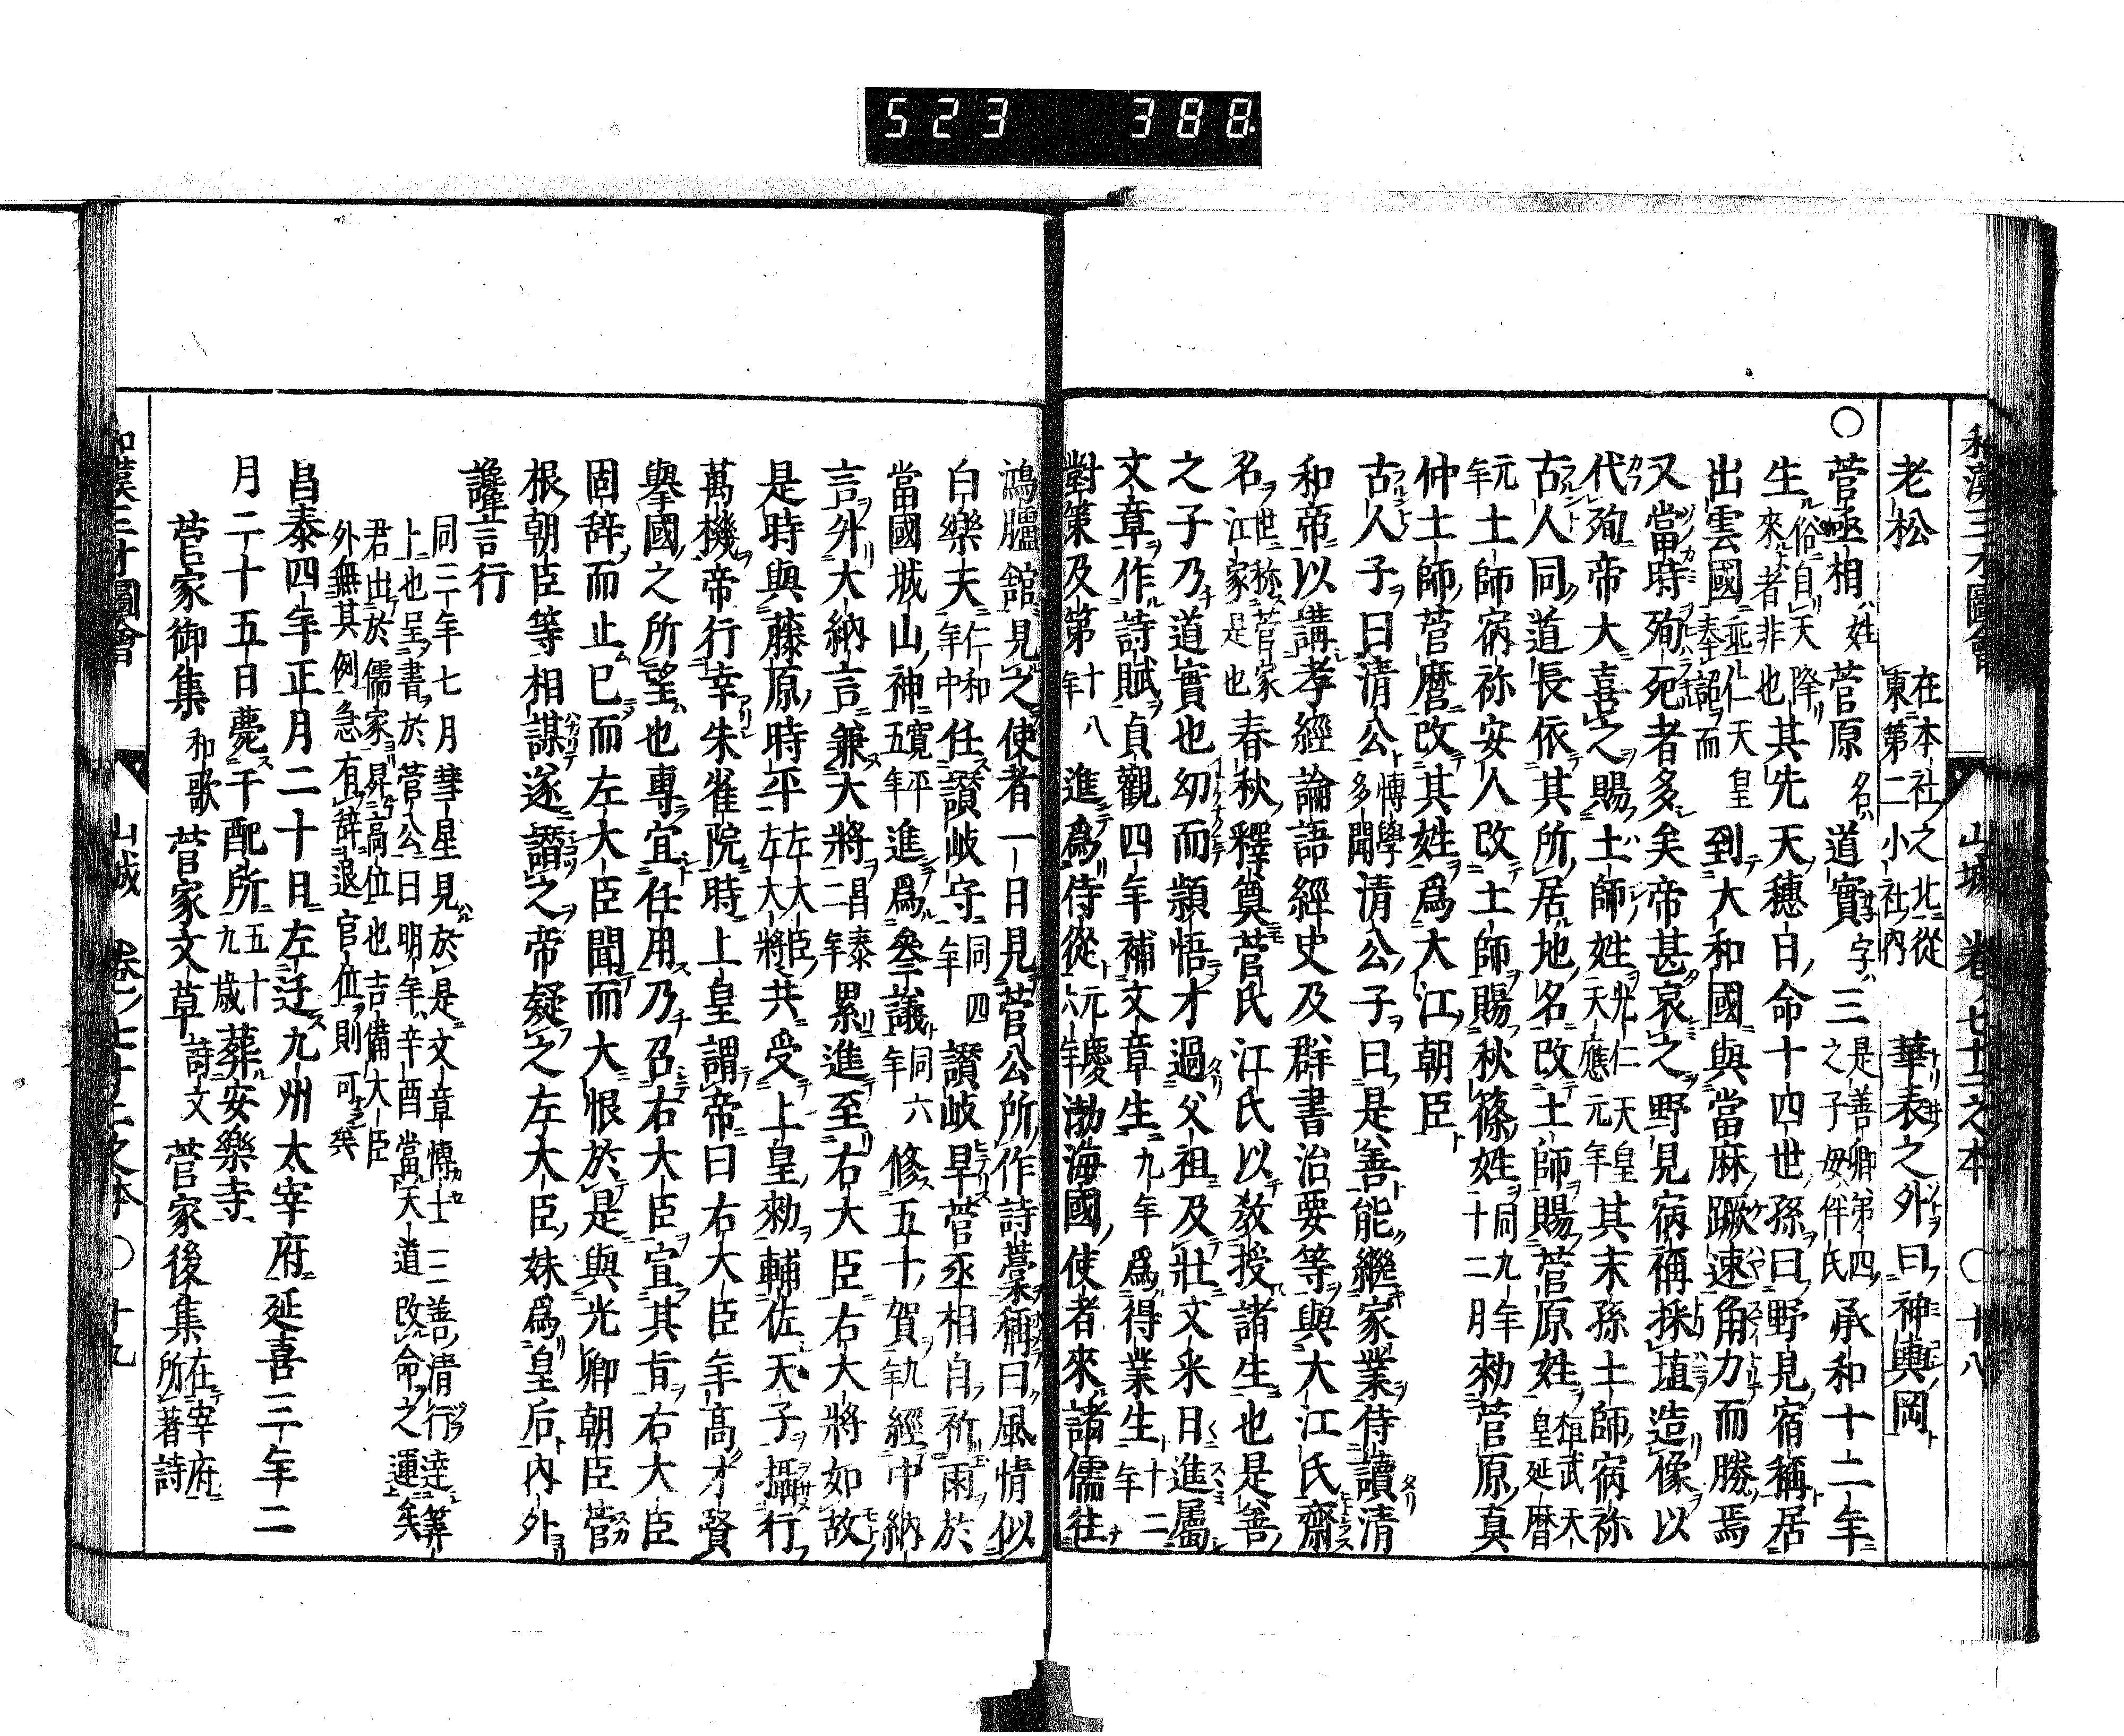 523 388
和漢三才圖會 山城 卷ノ七十二之本 ○十八
老松 在本社之北從東第二小社内 華表之外曰神輿岡
○菅丞相 姓菅原 名道實 字三 是善卿第四之子母伴氏 承和十二年
生 俗自天降來者非也 其先天穗日命十四世孫曰野見宿稱居
出雲國 垂仁天皇奉詔而 到大和國與當麻蹶速角力而勝焉
又當時殉死者多矣帝甚哀之野見病禰採埴造像以
代殉帝大喜之賜土師姓 光仁天皇天應元年 其末孫土師病祢
古人同道長依其所居地名改土師賜菅原姓 桓武天皇延曆
元年 土師病祢安人改土師賜秋篠姓 同九年十二月 勅菅原真
仲土師菅麿改其姓爲大江朝臣
古人子曰清公 博學多聞 清公子曰是善能繼家業侍讀清
和帝以講孝經論語經史及群書治要等與大江氏齋
名 世称菅家江家是也 春秋釋奠菅氏江氏以教授諸生也是善
之子乃道實也幼而顈悟才過父祖及壯文釆日進屬
文章作詩賦貞觀四年補文章生 九年 爲得業生 十二年
對策及第 十八年 進爲侍從 元慶六年 渤海國使者來諸儒往
鴻臚舘見之使者一日見菅公所作詩藁稱曰風情似
白樂夫 仁和年中 任讃岐守 同四年 讃岐旱菅丞相自祈雨於
當國城山神 寛平五年 進爲叅議 同六年 修五十賀 九年 經中納
言外大納言兼大將 昌泰二年 累進至右大臣右大將如故
是時與藤原時平 左大臣左大將 共受上皇勅輔佐天子攝行
萬機帝行幸朱雀院時上皇謂帝曰右大臣年高才賢
擧國之所望也專宜任用乃召右大臣宣其㫖右大臣
固辞而止已而左大臣聞而大恨於是與光卿朝臣菅
根朝臣等相謀遂譖之帝疑之左大臣妹爲皇后内外
讒言行
同三年七月彗星見於是文章博士三善清行達筭
上也呈書於菅公曰明年辛酉當天道改命之運矣
君出於儒家昇高位也吉備大臣
外無其例急有辞退官位則可矣
昌泰四年正月二十日左迁九州太宰府延喜三年二
月二十五日薨于配所 五十九歳 葬安樂寺
菅家御集 和歌 菅家文草 詩文 菅家後集 在宰府所著詩
和漢三才圖會 山城 卷ノ七十二之本 ○十九